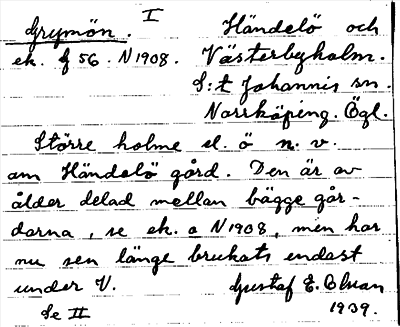 Grymön. I Händelö och
ek. f 56. N 1908. Västerbyholm.
S:t Johannis sn.
Norrköping. Ögl.
Större holme el. ö n. v.
om Händelö gård. Den är av
ålder delad mellan bägge går-
darna, se ek. o N 1908, men har
nu sen länge brukats endast
under V. Gustaf E. Olsson
Se II 1939.